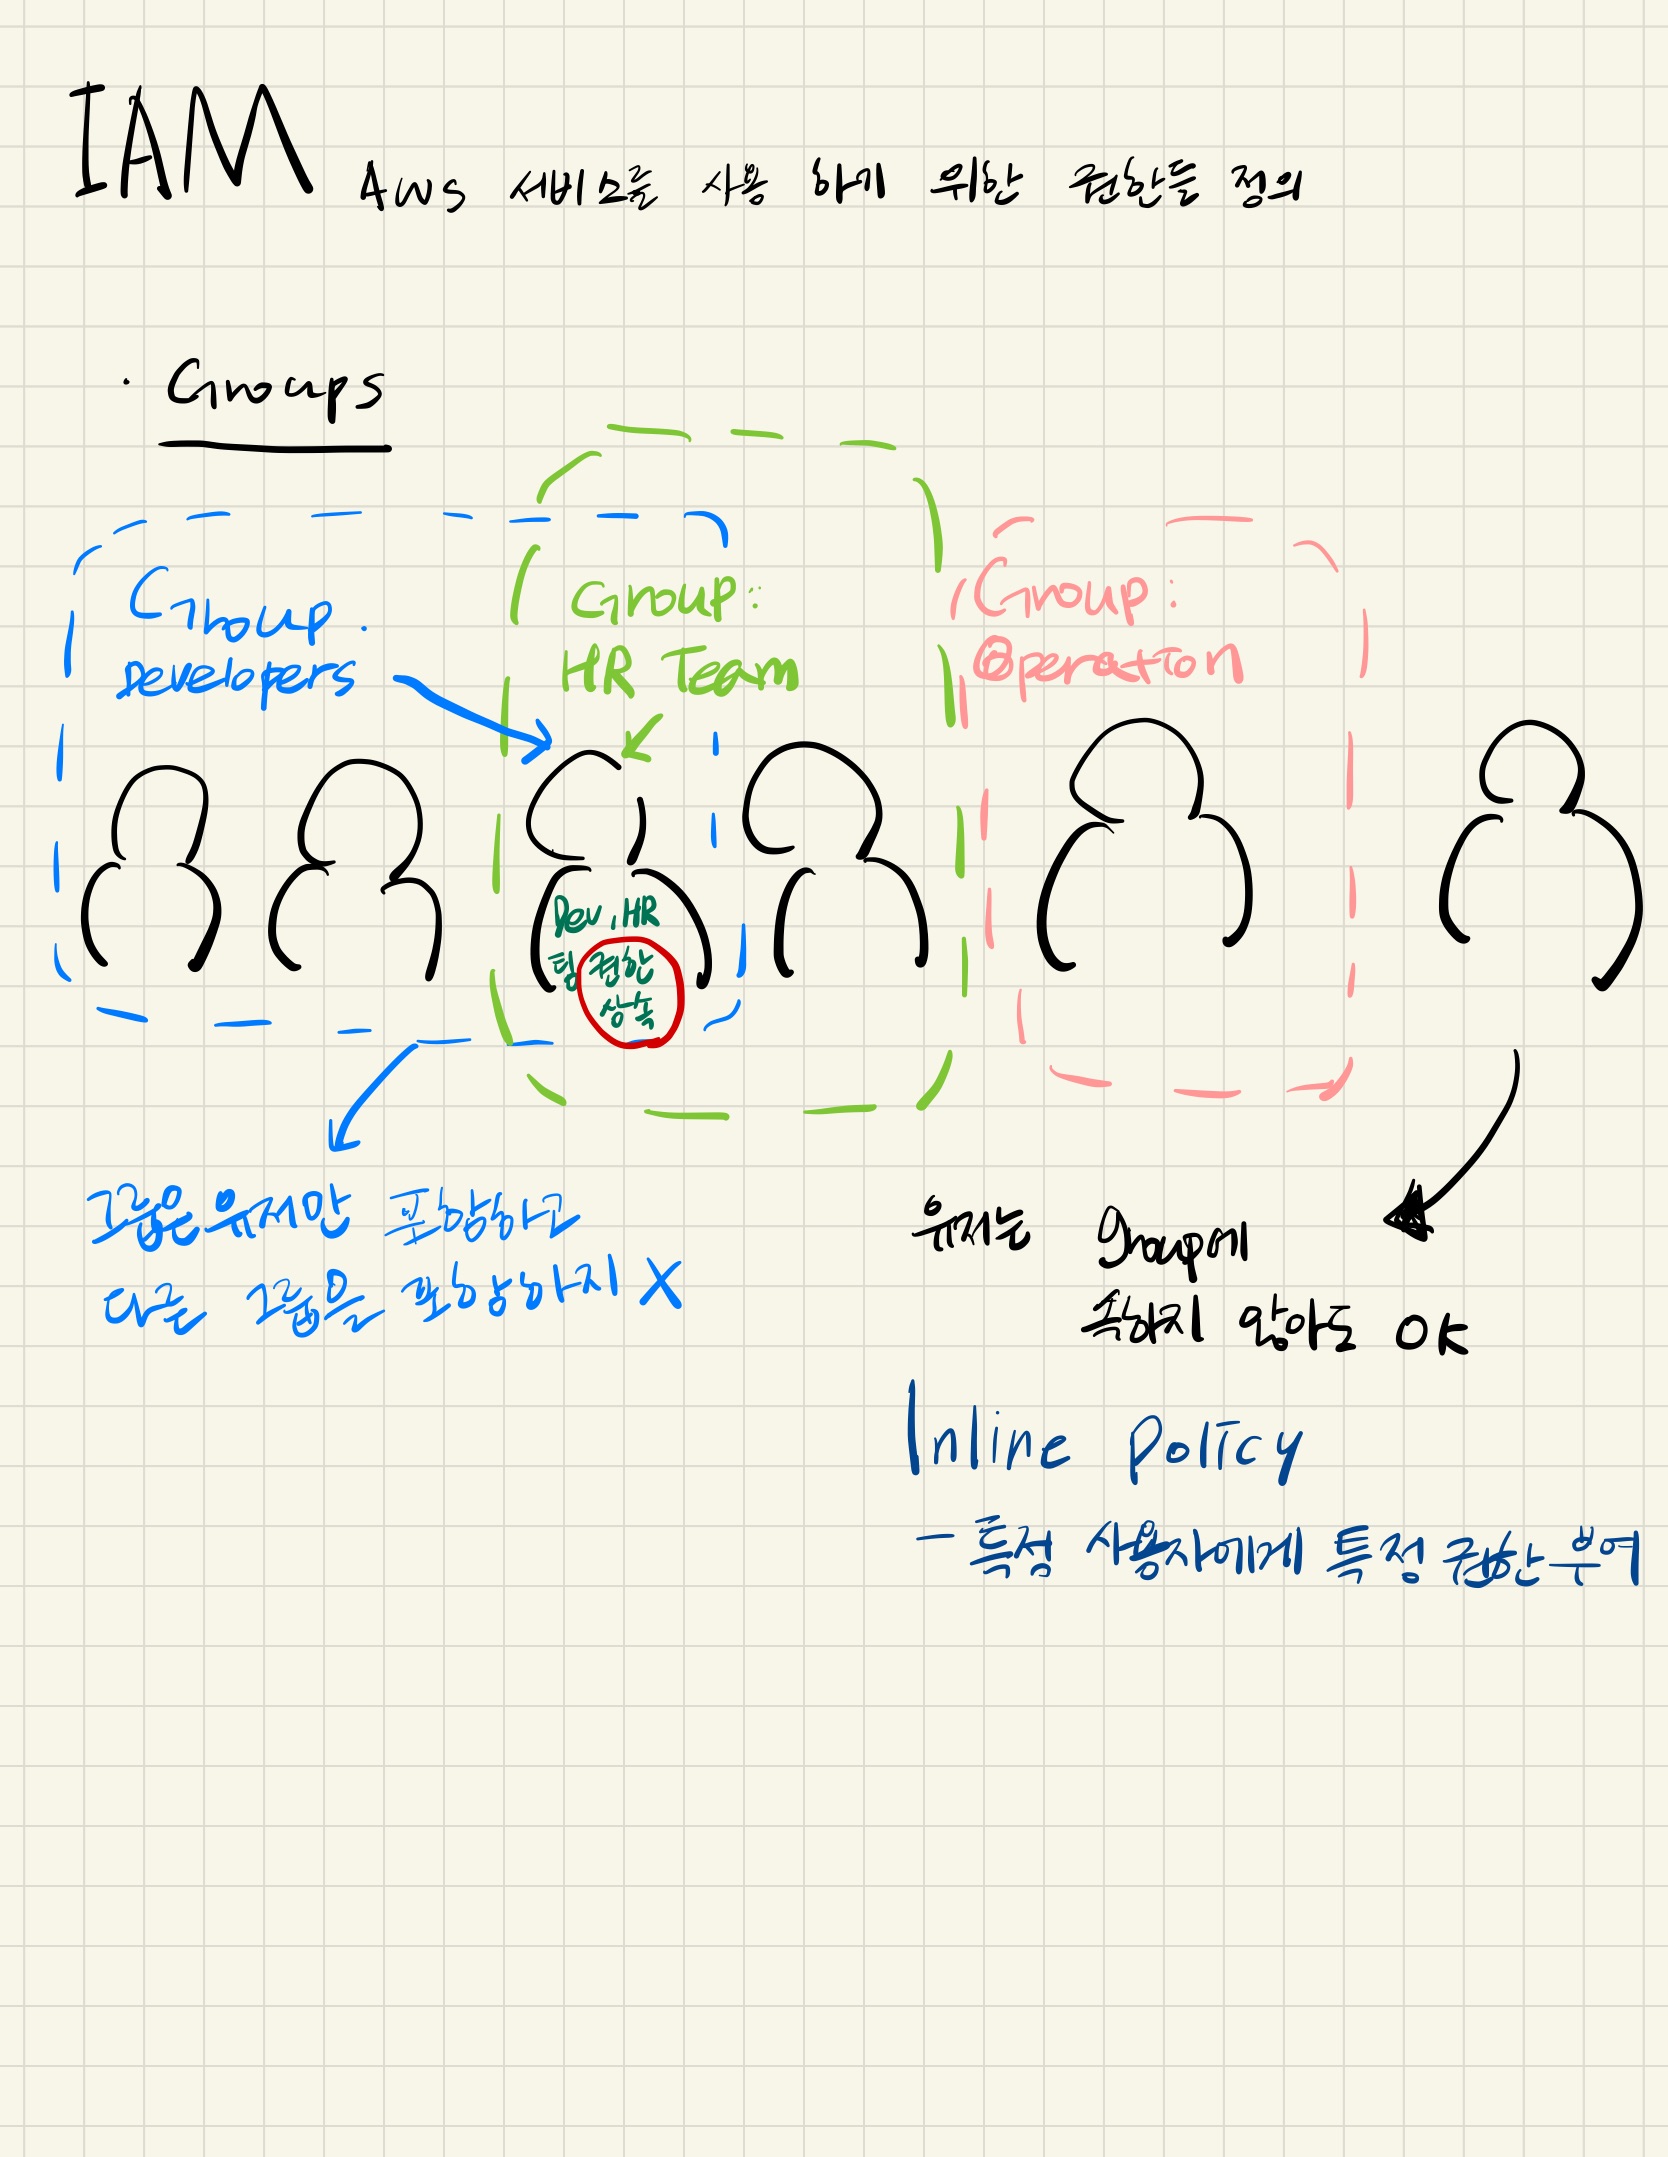 IAM AWS 서비스를 사용 하기 위한 권한들 정의
· Groups
Group :
Developers
Group :
HR Team
Group :
Operation
Dev, HR
팀 권한
상속
그룹은 유저만 포함하고
다른 그룹을 포함하지 X
유저는 group에
속하지 않아도 OK
Inline policy
- 특정 사용자에게 특정 권한 부여